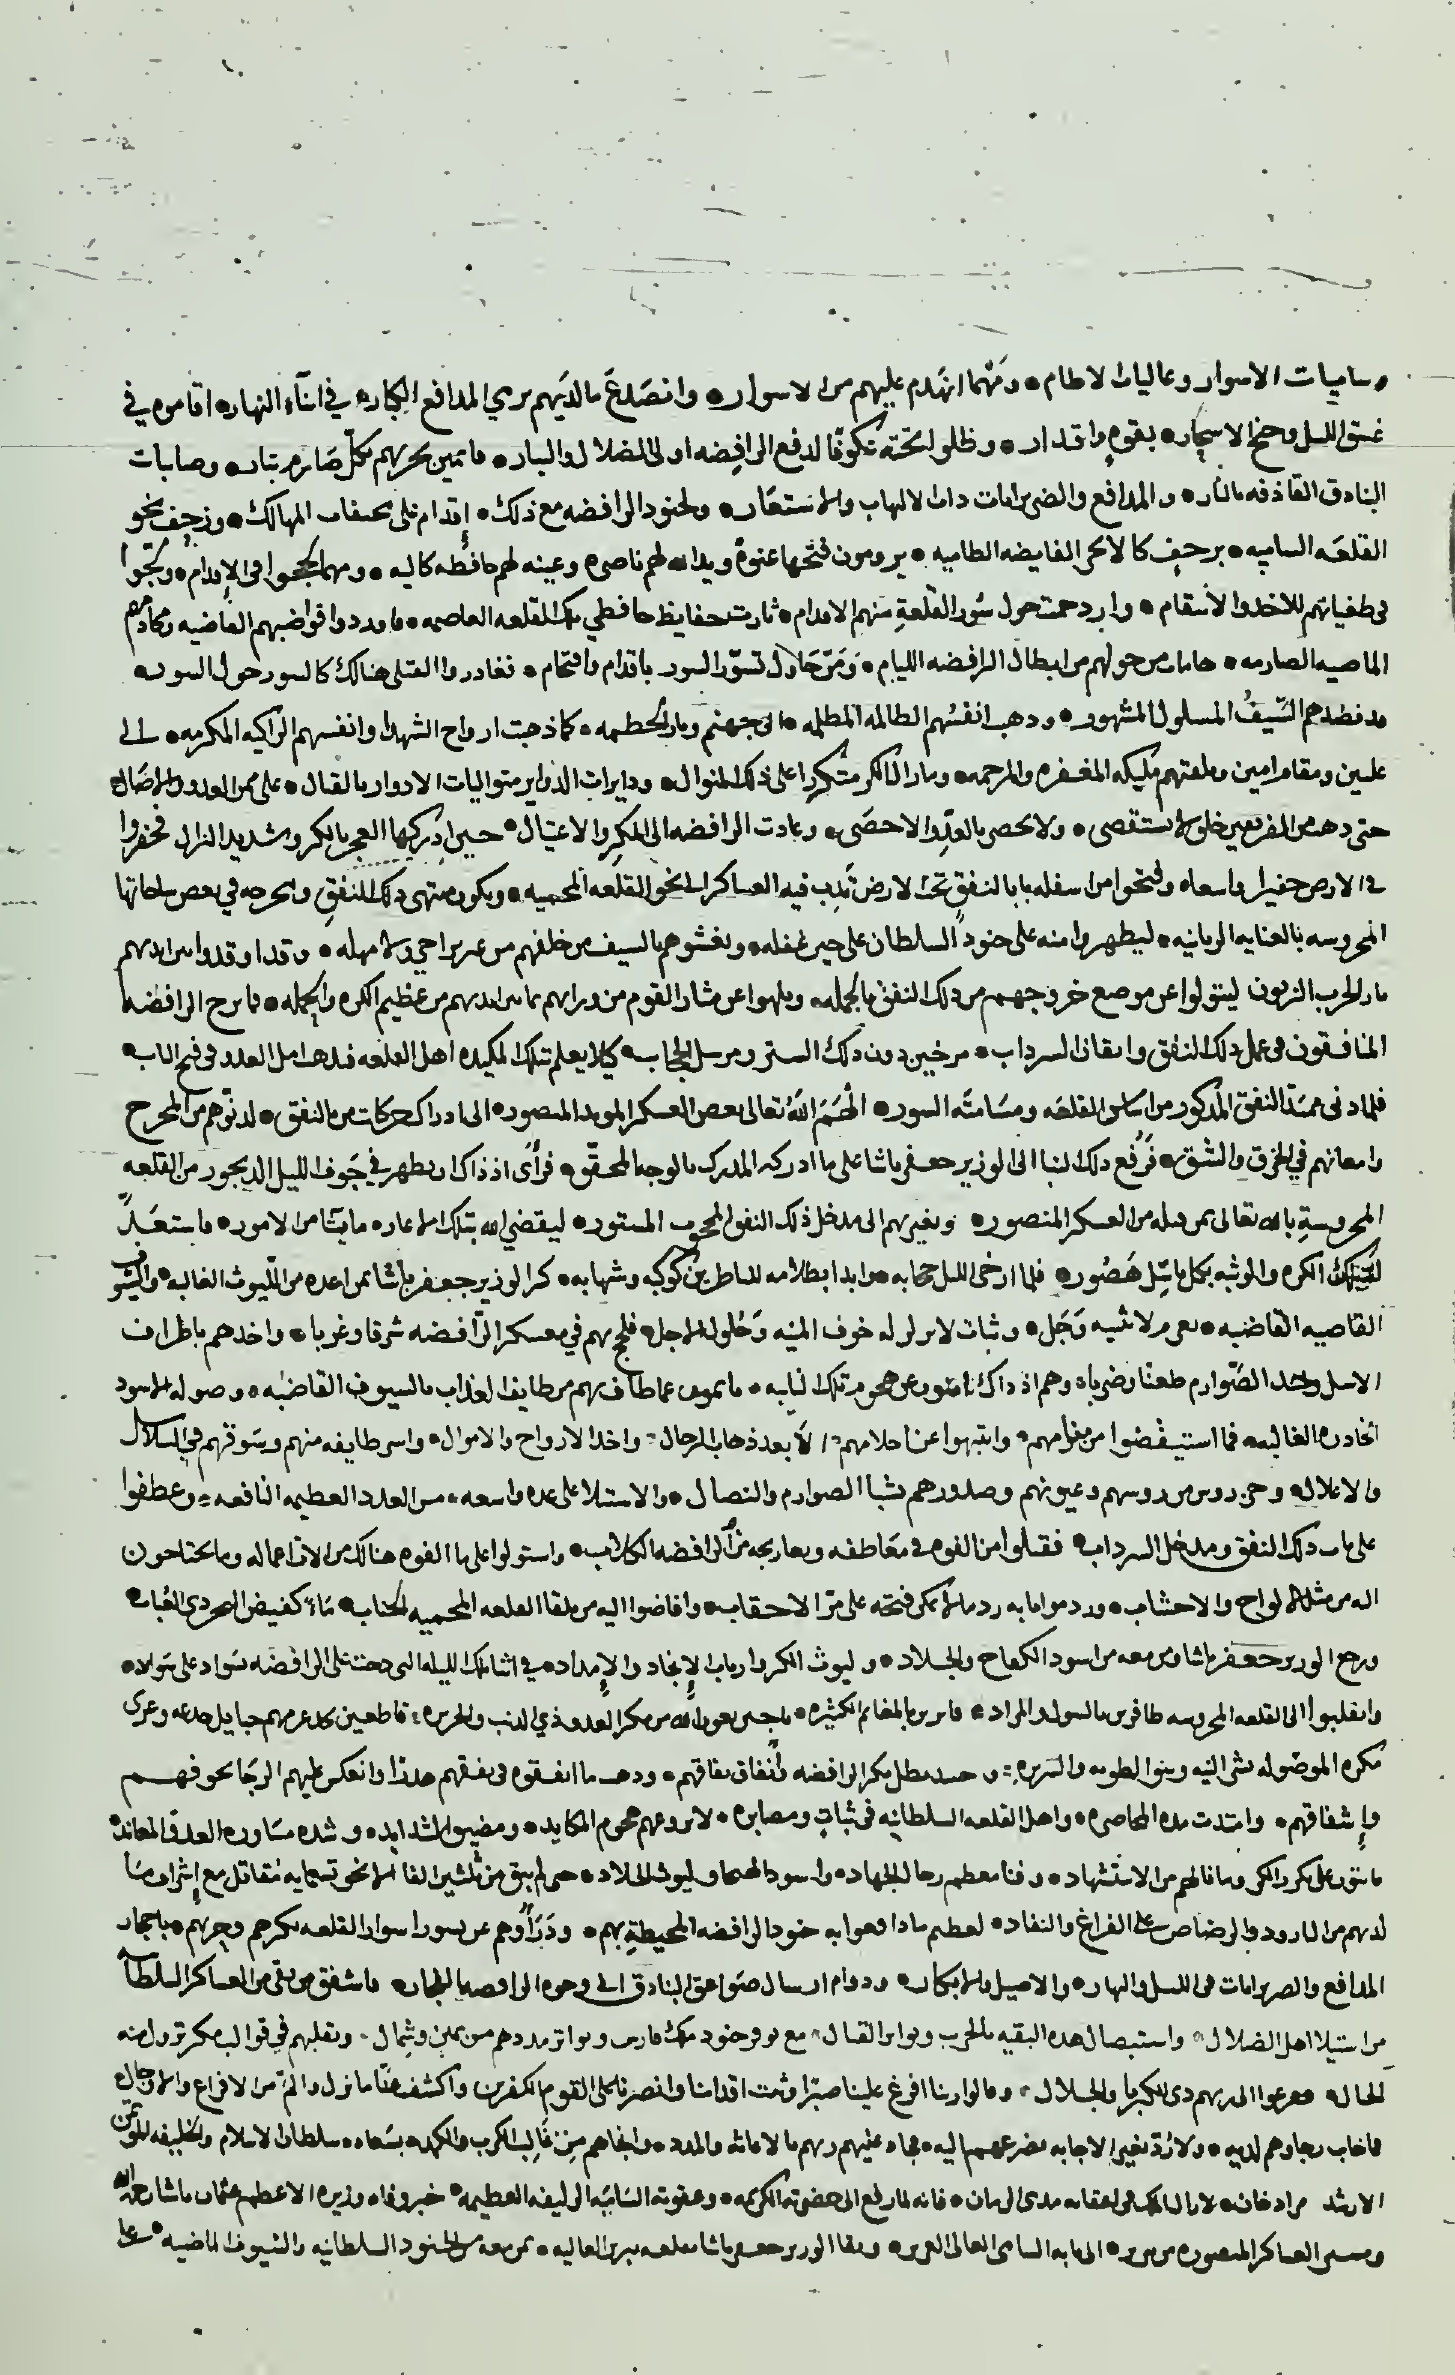 وساميات الاسوار وعاليات الاطام ومهما انهدم عليهم من الاسوار وانصدع مالديهم برمي المدافع الكبار في اثناء النهار اقاموه في
غسق الليل وجنح الاسحار بقوه واقتدار وظلوا تحته عكوفا لدفع الرافضه اولي الضلال والبار قائمين بحربهم بكل صارم بتار وصابات
البنادق القاذفه بالنار والمدافع والضربزانات ذات الالهاب والاستعار ولجنود الرافضه مع ذلك إقدام على المهالك وزحف نحو
القلعه الساميه برحف كالابحر الفايضه الطاميه يرومون فتحها عنوة ويد الله لهم ناصره وعينه لهم حافظه كاليه ومهما لججوا في الاقدام ولجوا
في طغيانهم للاخذ والانتقام وازدحمت حول سور القلعة منهم الاقدام ثارت حفايظ حافظي تلك القلعه العاصمه فاوردوا قواضبهم القاضيه
الماضيه الصارمه من حولهم من ابطال الرافضه الليام ومن حاول تسور السور باقدام واقتحام فغادروا القتلى هنالك كالسور حول السور
قد فصلهم السيف المسلول المشهور وذهب انفسهم الظالمه المظلمه الى جهنم ونار الحطمه كما ذهبت ارواح الشهدا وانفسهم الزاكيه المكرمه الى
عليين ومقام امين وتلقتهم مليكه المغفره والمرحمه وما زال الكر متكررا على ذلك المنوال ودايرات الدواير متواليات الادوار بالقتال على ممر الغدو والاصال
حتى ذهب من الفريقين خلق لا يستقصى ولا يحصر بالعد والاحصى وعادت الرافضه الى المكر والاغتيال حين ادركها العجز بالكر وشديد النزال فحفروا
في الارض حفيرا واسعا وفتحوا من اسفله بابا لنفق تحت الارض تدب فيه العساكر الى نحو القلعه المحميه ويكون منتهى ذلك النفق ومخرجه في بعض ساحاتها
المحروسه بالعنايه الربانيه ليظهروا منه على جنود السلطان على حين غفله ويغشوهم بالسيف من خلفهم من غير تراخي ولا مهله وقد اوقدوا من ايديهم
نار الحرب الزبون ليتولوا عن موضع خروجهم من ذلك النفق بالجمله ويلهوا عن مثار القوم من ورايهم بما بين ايديهم من عظيم الكره والحمله فما برح الرافضه
المنافقون في عمل ذلك النفق واتقان السرداب مرخين دون ذلك الستر ومرسل الحجاب كيلا يعلم بتلك المكيده اهل القلعه
فلما دنى ممتد النفق المذكور من اساس القلعه ومسامته السور الهم الله تعالى بعض العسكر المويد المنصور الى ادراك حركات من بالنفق لدنوهم من المخرج
وامعانهم في الخرق والشق فرفع ذلك النبا الى الوزير جعفر باشا على ما ادركه المدرك بالوجه المحقق فرأى اذ ذاك ان يظهر في جوف الليل الديجور من القلعه
المحروسة بالله تعالى بمن قبله من العسكر المنصور ويغير بهم الى مدخل ذلك النفق المحجوب المستور ليقضي الله بتلك الاغاره ما يشا من الامور فاستعد
لتلك الكره والوثبه بكل باسل هصور فلما ارخى الليل حجابه وابدا بظلامه للناظرين كوكبه وشهابه كر الوزير جعفر باشا بمن اعده من الليوث الغالبه والسيوف
القاصيه القاضيه بعزم لا يثنيه وجل وثبات لا يزلزله خوف المنيه وحلول الاجل فلج بهم في معسكر الرافضه شرقا وغربا واخذهم باطراف
الاسل وحد الصوارم طعنا وضربا وهم اذ ذاك نامون عن هجوم تلك النايبه عما طاف بهم من طايف العذاب بالسيوف القاضبه وصوله الاسود
الخادره الغالبه فما استيقضوا من نومهم وانتبهوا عن احلامهم الا بعد ذهاب الرجال واخذ الارواح والاموال واسر طايفه منهم وسوقهم في السلاسل
والاغلال وحز روس من روسهم وعيونهم وصدورهم بشبا الصوارم والنصال والاستيلا على عده واسعه من العدد العظيمه النافعه وعطفوا
على باب ذلك النفق ومدخل السرداب فقتلوا من القوم في معاطفه ومعارجه من الرافضه الكلاب واستولوا على ما القوم هنالك من الات اعماله وما يحتاجون
اليه من مثل الالواح والاخشاب وردموا بابه ردما لا يمكن فتحه على مر الاحقاب وافاضوا اليه من تلقا القلعه المحميه الجناب ماء كفيض البحر ذي العباب
ورجع الوزير جعفر باشا ومن معه من اسود الكفاح والجلاد وليوث الكر وارباب الانجاد والامداد في اثنا تلك الليله التي دجت على الرافضه سواد على سواد
وانقلبوا الى القلعه المحروسه ظافرين بالسول والمراد فايزين بالمغانم الكثيره ناجين بعون الله من مكر العدو ذي الذنب والجريره قاطعين حبايل خدعه وعرى
مكره الموصوله بشر النيه وسو الطويه والسريره وحينئذ بطل مكر الرافضه ونفاق نفاقهم وذهب ما انفقوه في نفقهم هدرا وانعكس عليهم الرجا بخوفهم
وإشفاقهم وامتدت مده المحاصره واهل القلعه السلطانيه في ثبات ومصابره لا يروعهم هجوم المكايد ومضيق الشدايد وشده مساوره العدو المعاند
على تكرر الكر وما نالهم من الاستشهاد وفنا معظم رجال الجهاد واسود الهيجا وليوث الجلاد حتى لم يبق من ثلثين الفا الا نحو تسعمايه مقاتل مع إشراف ما
لديهم من البارود والرصاص على الفراغ والنفاد لعظيم ما دافعوا به جنود الرافضه المحيطة بهم ودرأوهم عن تسور اسوار القلعه بكرهم وحربهم باحجار
المدافع والضربزانات في الليل والنهار والاصيل والابكار ودوام ارسال صواعق البنادق الى وجوه الرافضه فاشفق من بقي من العساكر السلطانيه
من استيلا اهل الضلال واستيصال هذه البقيه بالحرب وتواتر القتال مع توفر جنود ملك فارس وتواتر مددهم من يمين وشمال وتقلبهم في قوالب مكر تزول منه
الجبال ففزعوا الى ربهم ذي الكبريا والجلال وقالوا ربنا افرغ علينا صبرا وثبت اقدامنا وانصرنا على القوم الكفرين واكشف عنا ما نزل والم من الافزاع والاوجال
فما خاب رجاوهم لديه ولا رد بغير الاجابه تضرعهم اليه فجاد عليهم ربهم بالاغاثه والمدد وانجاهم من غالب الكرب والكمد بسعاده سلطان الاسلام والخليفه
الارشد مراد خان لا زال الملك في اعقابه مدى الزمان فانه لما رفع الى حضرته الكريمه وعقوته الساميه الشريفه العظيمه خبر وفاه وزيره الاعظم عثمان باشا رحمه الله
ومسير العساكر المنصوره من تبريز الى بابه السامي العالي العزيز وبقا الوزير جعفر باشا بقلعه تبريز العاليه بمن معه من الجنود السلطانيه والسيوف الماضيه